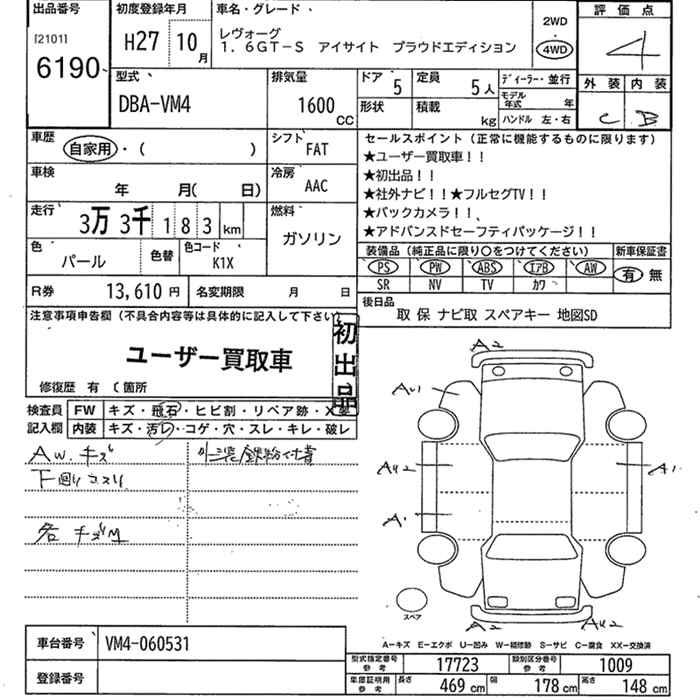 出品番号
[2101]
6190
初度登録年月
H27 10月
車名・グレード
レヴォーグ
1.6GT-S アイサイト プラウドエディション
2WD
・
4WD
評価点
4
外装 内装
C B
型式
DBA-VM4
排気量
1600
CC
ドア 5
定員 5人
形状
積載 kg
ディーラー・並行
モデル年式 年
ハンドル 左・右
車歴
自家用・( )
シフト FAT
車検
年 月( 日)
冷房 AAC
走行
3万3千183km
燃料
ガソリン
色
パール
色替
色コード
K1X
R券 13,610円
名変期限 月 日
セールスポイント(正常に機能するものに限ります)
★ユーザー買取車!!
★初出品!!
★社外ナビ!!★フルセグTV!!
★バックカメラ!!、
★アドバンスドセーフティパッケージ!!
装備品(純正品に限り〇をつけてください)
新車保証書
PS PW ABS エアB AW
有 無
SR NV TV カワ
後日品
取 保 ナビ取 スペアキー 地図SD
注意事項申告欄(不具合内容等は具体的に記入して下さい)
ユーザー買取車
初出品
修復歴 有 〔箇所
検査員
記入欄
FW キズ・飛石・ヒビ割・リペア跡・X要
内装 キズ・汚レ・コゲ・穴・スレ・キレ・破レ
AW.キズ
外装鉄粉付着
下回りコスリ
各キズM
A2
AU1
AU2
A1
A1
スペア
A2
AU2
A―キズ E―エクボ U―凹み W―補修跡 S―サビ C―腐食 XX―交換済
車台番号 VM4-060531
登録番号
型式指定番号
参考
17723
類別区分番号
参考
1009
車庫証明用
参考
長さ 469cm
幅 178cm
高さ 148cm